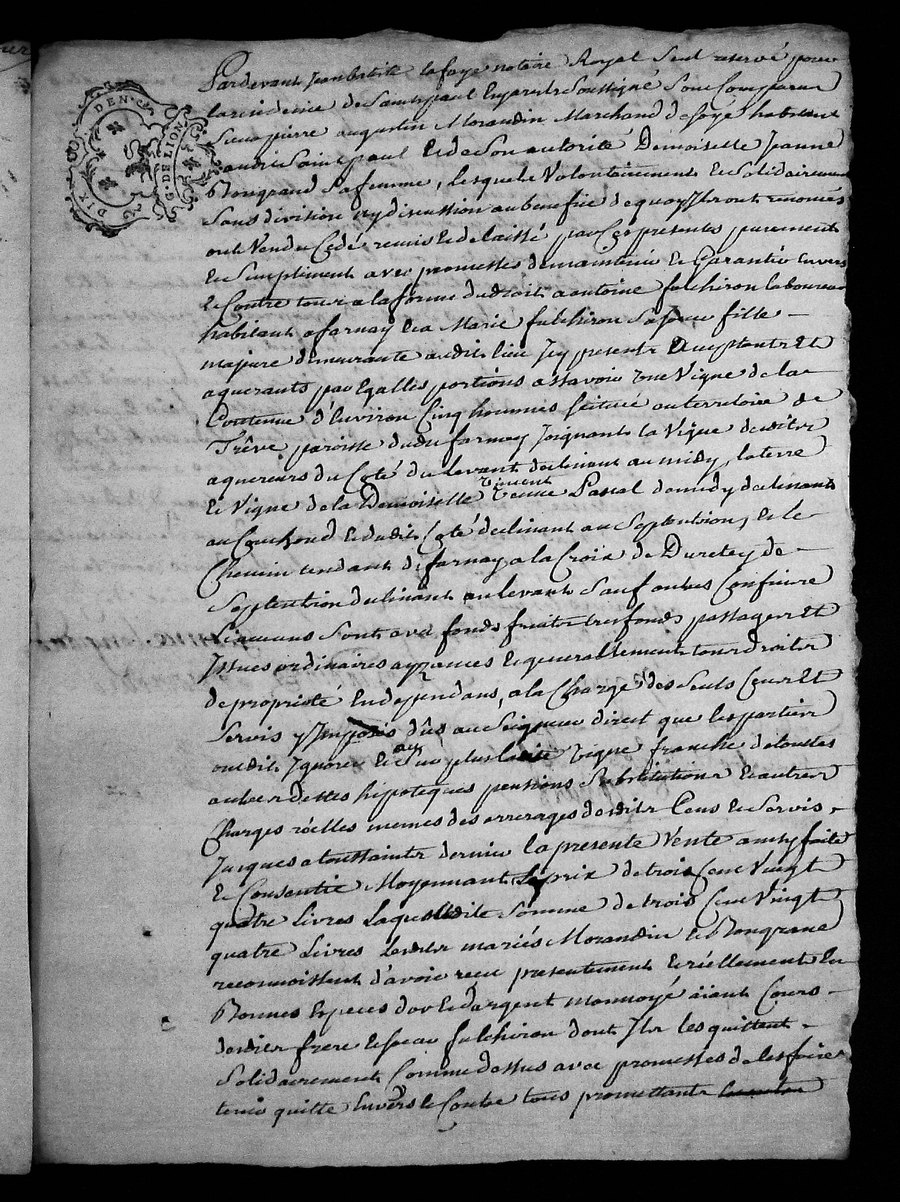 DIX DEN.ers
G. DE LION
Pardevant Jean batiste lafaye notaire Royal Seul reservé pour
la residence de Saint paul En jarest Soussigné Sont Comparus
Sieur pierre augustin Morandin Marchand de Soye habitant
audit Saint paul et de Son autorité Demoiselle Jeanne
Bongrand Sa femme, Lesquels Volontairement et Solidairement
Sans division ny discussion au benefice de quoy Ils ont renoncés
ont Vendu Cedé, remis et delaissé par Ces presentes purement
et Simplement avec promesses de maintenir et Garantir Envers
et Contre tous a la forme du droit a antoine fulchiron laboureur
habitant a farnay et a Marie fulchiron Sa Soeur fille
majeure demeurante audit lieu Icy presents acceptants Et
aquerants par Egalles portions assavoir une Vigne de la
Contenue d'Environ Cinq hommes Scituée au territoire de
Trêve paroisse dudit farnay Joignant la Vigne desdits
aquereurs du Coté du levant declinant au midy, la terre
et Vigne de la Demoiselle Veuve Pascal de midy declinant
au Couchand et dudit Coté declinant au Septentrion, et le
Chemin tendant de farnay a la Croix de Duretey de
Septentrion declinant au levant Sauf autres Confins
Si aucuns Sont avec fonds fruits tresfonds passages Et
Issues ordinaires aysances et generallement tous droits
de proprieté En dependans, a la Charge des Seuls Cens Et
Servis y Imposés dûs au Seigneur direct que les parties
ont dit Ignorer et au Sur plus Vigne franche de touttes
autres dettes hipoteques pensions Substitutions et autres
Charges réelles memes des arrerages desdits Cens et Servis
Jusques a toussaints dernier la presente Vente ainsy faite
et Consentie Moyennant Le prix de trois Cent Vingt
quatre livres Laquelle dite Somme de trois Cent Vingt
quatre Livres lesdits mariés Morandin et Bongrand
reconnoissent d'avoir reçu presentement et réellement En
Bonnes Especes d'or et d'argent monnoyé aiant Cours
desdits frere et Soeur fulchiron dont Ils les quittent
Solidairement Comme dessus avec promesses de les faire
tenir quitte Envers et Contre tous promettant